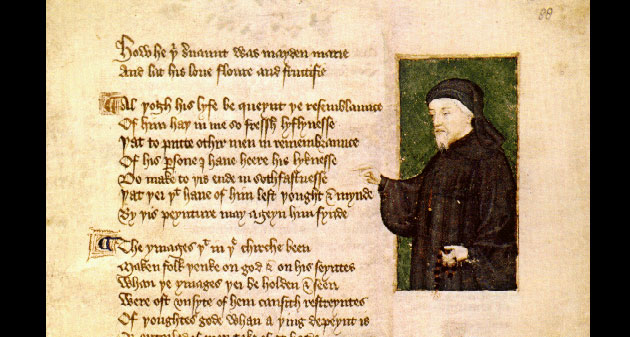 88
How he þⁱ s̉uaunt was mayden marie
And lat his loue floure and fructifie
Al þogh his lyfe be queynt þe resemblaunce
Of him haþ in me so fressh lyflynesse
Þat to putte othir men in remembraunce
Of his ꝑsone I haue heere his lyknesse
Do make to þis ende in sothfastnesse
Þat þei þᵗ haue of him left þought & mynde
By þis peynture may ageyn him fynde
The ymages þᵗ in þᵉ chirche been
Maken folk þenke on god & on his seyntes
Whan þe ymages þei be holden & seen
Were oft vnsyte of hem causith restreyntes
Of þoughtes gode whan a þing depeynt is